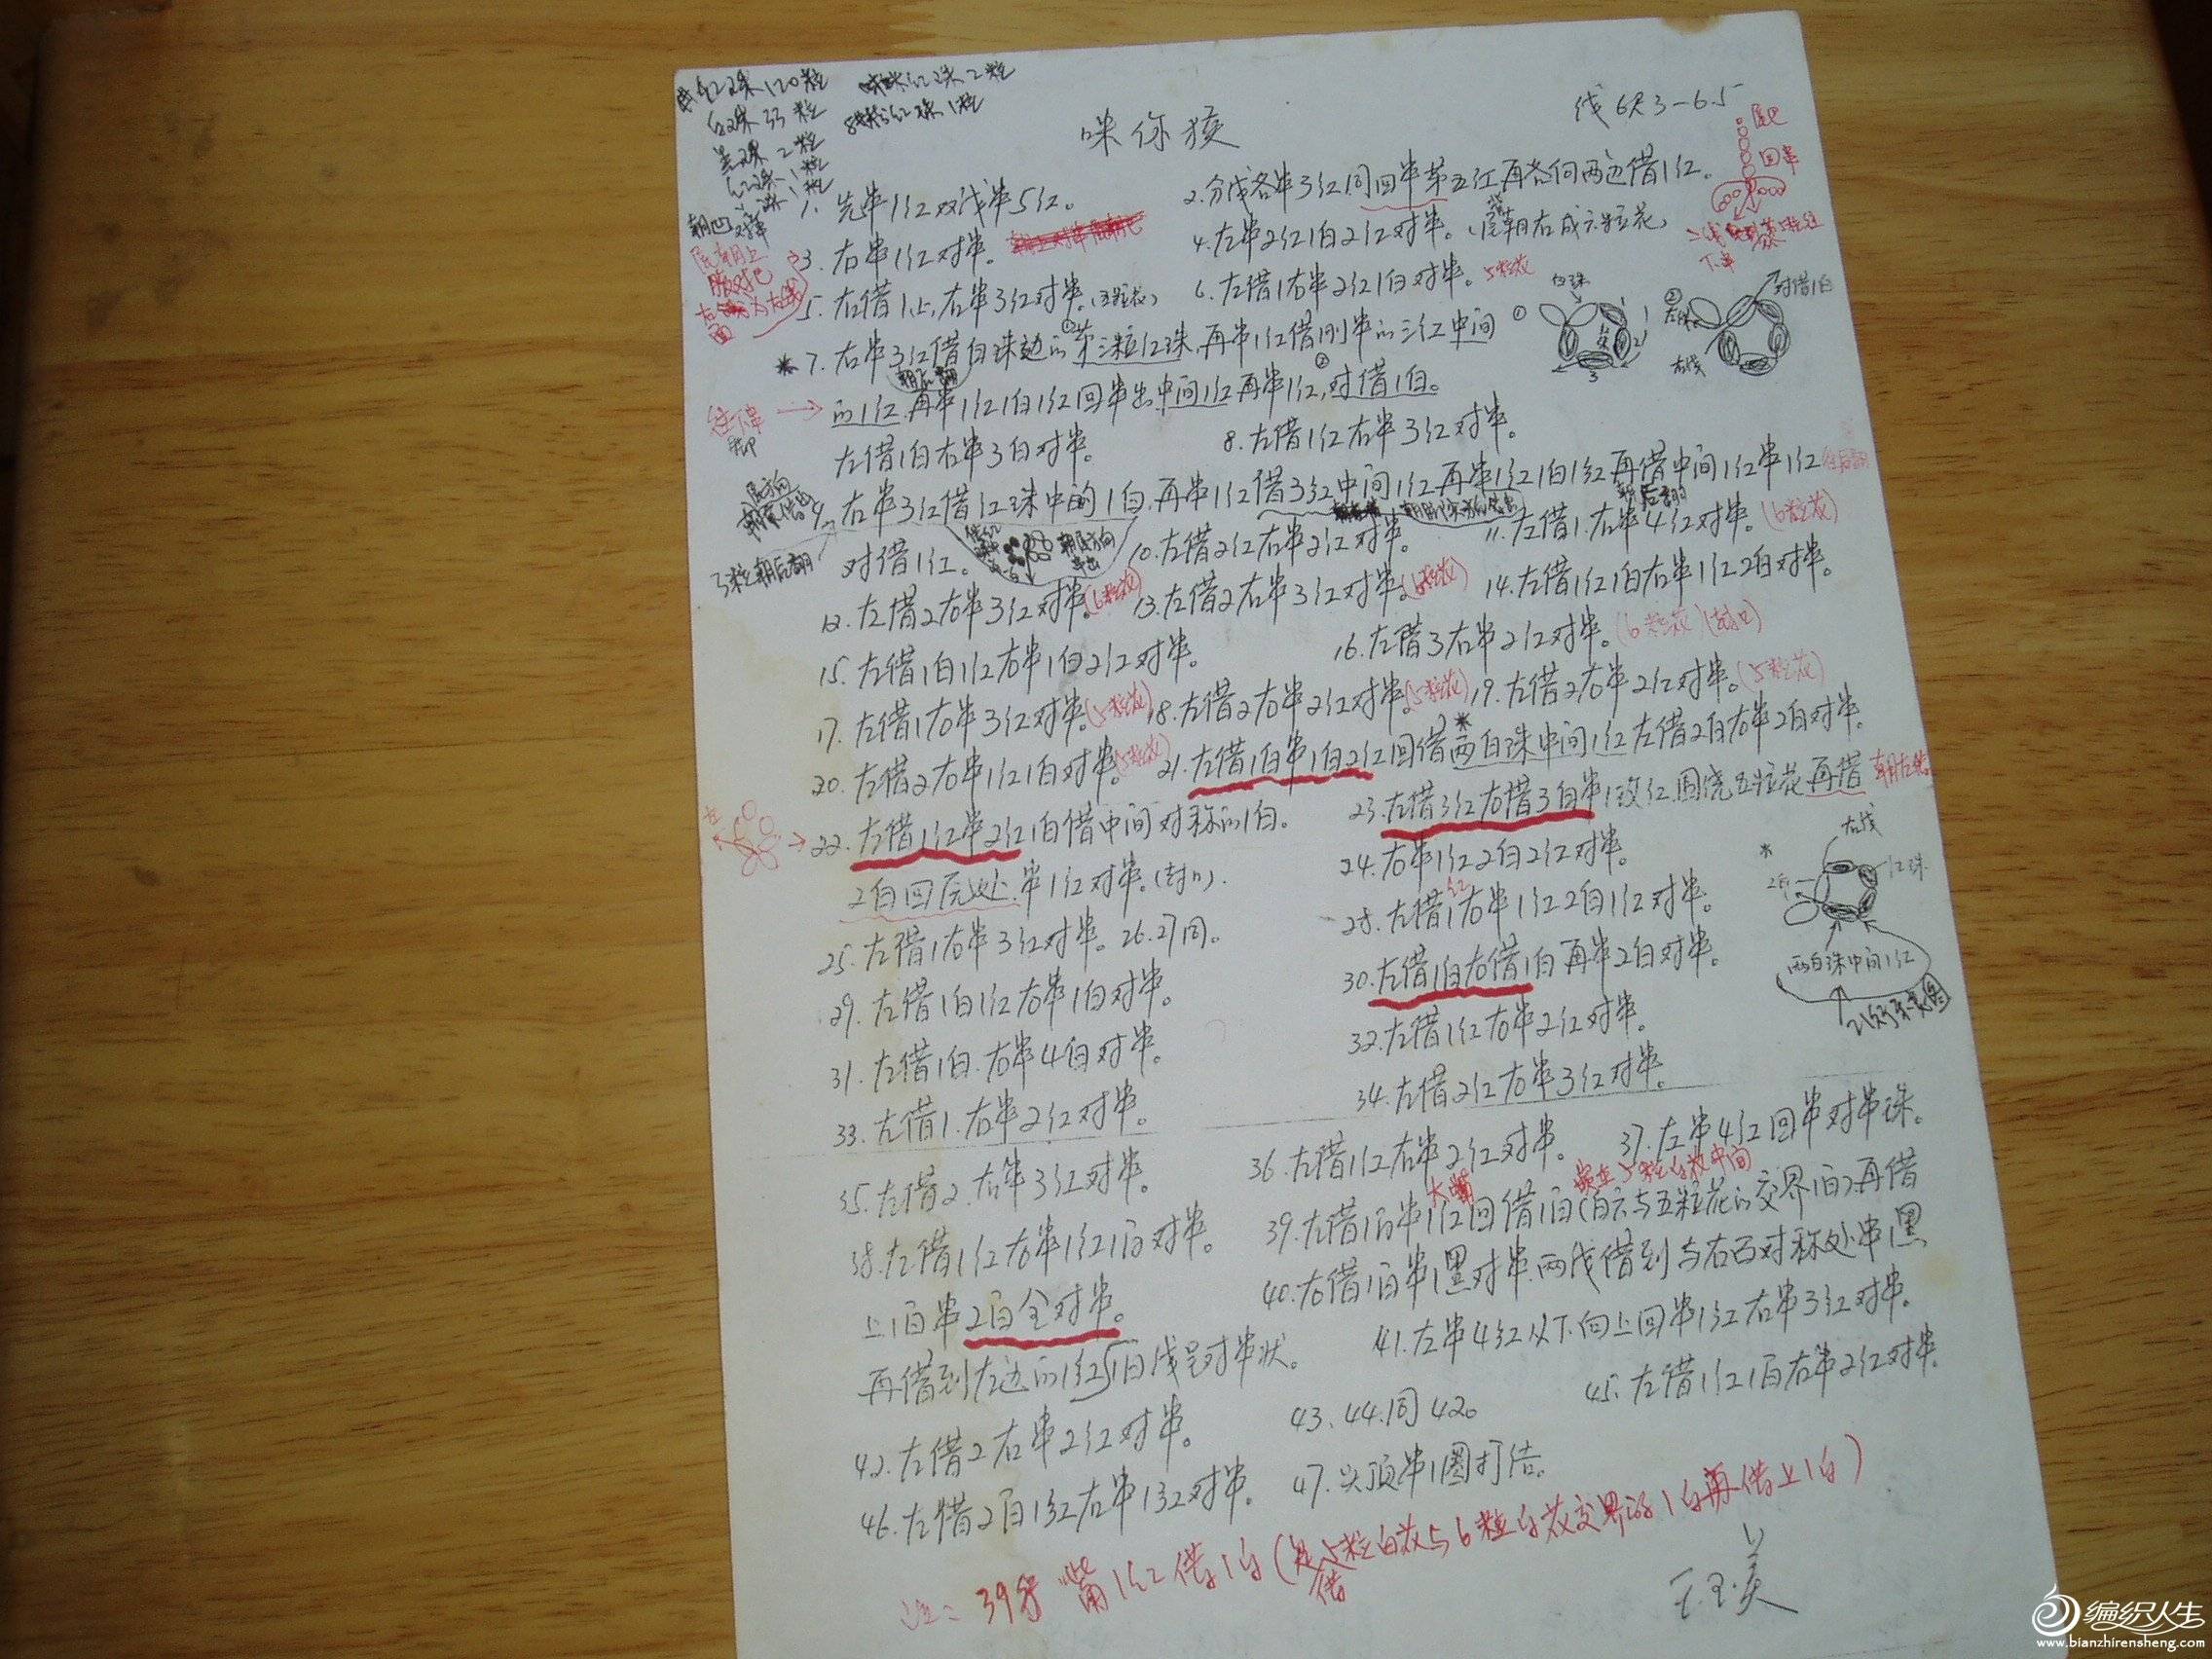 红珠120粒
白珠33粒
黑珠2粒
红珠1粒
咪你猴
线6尺3-6.5
尾巴
回串
1. 先串1红双线串5红。
2. 分线各串3红同回串第五红再各向两边借1红。
3. 右串1红对串。
4. 左串2红1白2红对串。(尾朝右成六粒花)
5. 左借1上,右串3红对串。(五粒花)
6. 左借1右串2红1白对串。5粒花
白珠
对借1白
右线
*7. 右串3红借白珠边的第三粒红珠,再串1红借刚串的三红中间
的1红,再串1红1白1红回串出中间1红再串1红,对借1白。
左借1白右串3白对串。
8. 左借1红右串3红对串。
9. 右串3红借红珠中的1白,再串1红借3红中间1红再串1红1白1红再借中间1红串1红
对借1红。
3粒朝后翻
10. 左借2红右串2红对串。
11. 左借1.右串4红对串。(6粒花)
12. 左借2右串3红对串。(6粒花)
13. 左借2右串3红对串。(6粒花)
14. 左借1红1白右串1红2白对串。
15. 左借1白1红右串1白2红对串。
16. 左借3右串2红对串。(6粒花)(封口)
17. 左借1右串3红对串。(5粒花)
18. 左借2右串2红对串。(5粒花)
19. 左借2右串2红对串。(5粒花)
20. 左借2右串1红1白对串。(5粒花)
21. 左借1白串1白2红回借两白珠中间1红左借2白右串2白对串。
22. 左借1红串2红1白借中间对称的1白。
23. 左借3红右借3白串1玫红,围绕五粒花再借
2白回尾处.串1红对串。(封口).
24. 右串1红2白2红对串。
25. 左借1右串3红对串。26.27同。
28. 左借1红右串1红2白1红对串。
29. 左借1白1红右串1白对串。
30. 左借1白右借1白再串2白对串。
31. 左借1白.右串4白对串。
32. 左借1红右串2红对串。
33. 左借1.右串2红对串。
34. 左借2红右串3红对串。
右线
红珠
两白珠中间1红
35. 左借2.右串3红对串。
36. 左借1红右串2红对串。
37. 左串4红回串对串珠。
38. 左借1红右串1红1白对串。
39. 左借1白串1红回借1白(白六与五粒花的交界1白)再借
上1白串2白全对串。
40. 右借1白串1黑对串.两线借到与右面对称处串1黑
再借到左边的1红1白线呈对串状。
41. 左串4红以下向上回串1红右串3红对串。
42. 左借2右串2红对串。
43、44.同42。
45. 左借1红1白右串2红对串。
46. 左借2白1红右串1红对串。
47. 头顶串1圈打结。
注:39步嘴1红借1白(是借5粒白花与6粒白花交界的1白再借上1白)
编织人生
www.bianzhirensheng.com